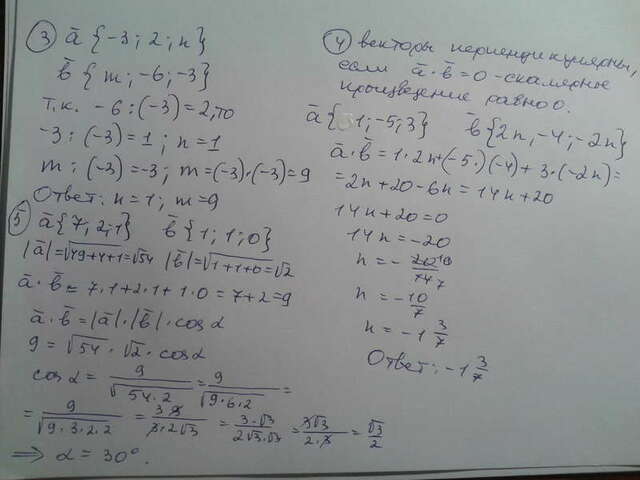 3 ā {-3; 2; n}
b̄ {m; -6; -3}
т.к. -6 : (-3) = 2, то
-3 : (-3) = 1; n = 1
m : (-3) = -3; m = (-3)·(-3) = 9
Ответ: n = 1; m = 9
5 ā {7, 2; 1} b̄ {1; 1; 0}
|ā| = √49+4+1 = √54 |b̄| = √1+1+0 = √2
ā · b̄ = 7·1 + 2·1 + 1·0 = 7 + 2 = 9
ā · b̄ = |ā| · |b̄| · cos α
9 = √54 · √2 · cos α
cos α = 9/√54·2 = 9/√9·6·2 =
= 9/√9·3·2·2 = 3·3/3·2√3 = 3·√3/2√3·√3 = 3√3/2·3 = √3/2
⇒ α = 30°.
4 векторы перпендикулярны,
если ā · b̄ = 0 - скалярное
произведение равно 0.
ā {1; -5; 3} b̄ {2n, -4; -2n}
ā · b̄ = 1·2n + (-5·)(-4) + 3·(-2n) =
= 2n + 20 - 6n = 14n + 20
14n + 20 = 0
14n = -20
n = - 20 10/14 7
n = - 10/7
n = -1 3/7
Ответ: -1 3/7